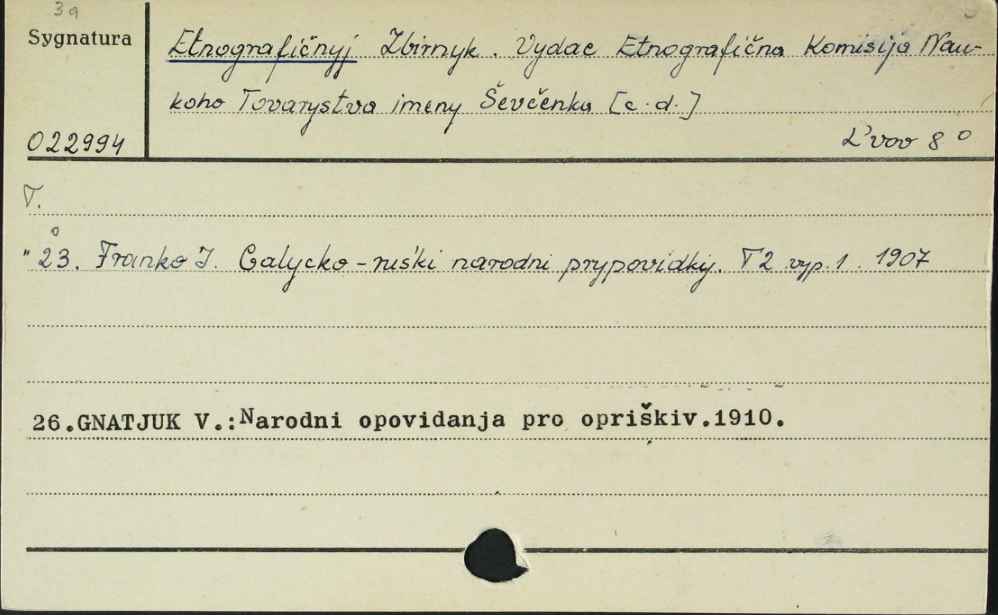 3a
Sygnatura
Etnografičnyj Zbirnyk. Vydae Etnografična Komisija Nau-
koho Tovarystva imeny Ševčenka [c.d.]
022994
L'vov 8°
T.
" 23. Franko I. Galycko-ruśki narodni prypovidky. T2 vyp. 1. 1907
26.GNATJUK V.:Narodni opovidanja pro opriškiv.1910.